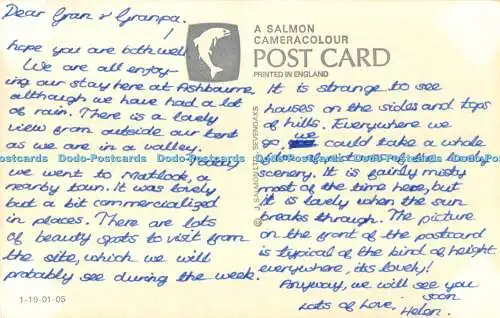 Dear Gran & Granpa,
I
hope you are both well.
We are all enjoy-
ing our stay here at Ashbourne
although we have had a lot
of rain. There is a lovely
view from outside our tent
as we are in a valley.
today
we went to Matlock, a
nearby town. It was lovely
but a bit commercialized
in places. There are lots
of beauty spots to visit from
the site, which we will
probably see during the week.
1-19-01-05
A SALMON
CAMERACOLOUR
POST CARD
PRINTED IN ENGLAND
© J. SALMON LTD., SEVENOAKS
It is strange to see
houses on the sides and tops
of hills. Everywhere we
go, we could take a whole
scenery. It is fairly misty
most of the time here, but
it is lovely when the sun
breaks through. The picture
on the front of the postcard
is typical of the kind of height
everywhere, its lovely!
Anyway, we will see you
soon
Lots of Love,
Helen.
Dodo-Postcards Dodo-Postcards Dodo-Postcards Dodo-Postcards Dodo-Postcards Dodo-Postcards